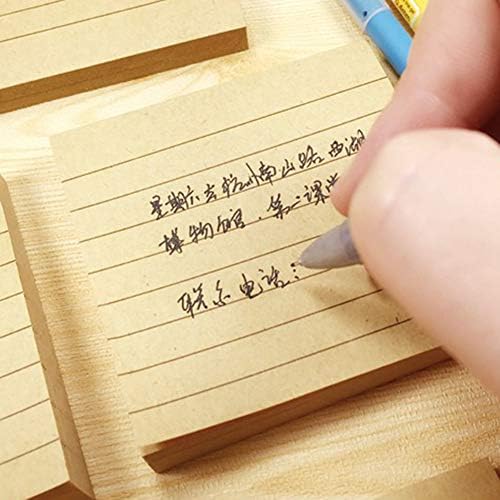 星期六去杭州南山路西湖
博物馆，第二课堂
联系电话：